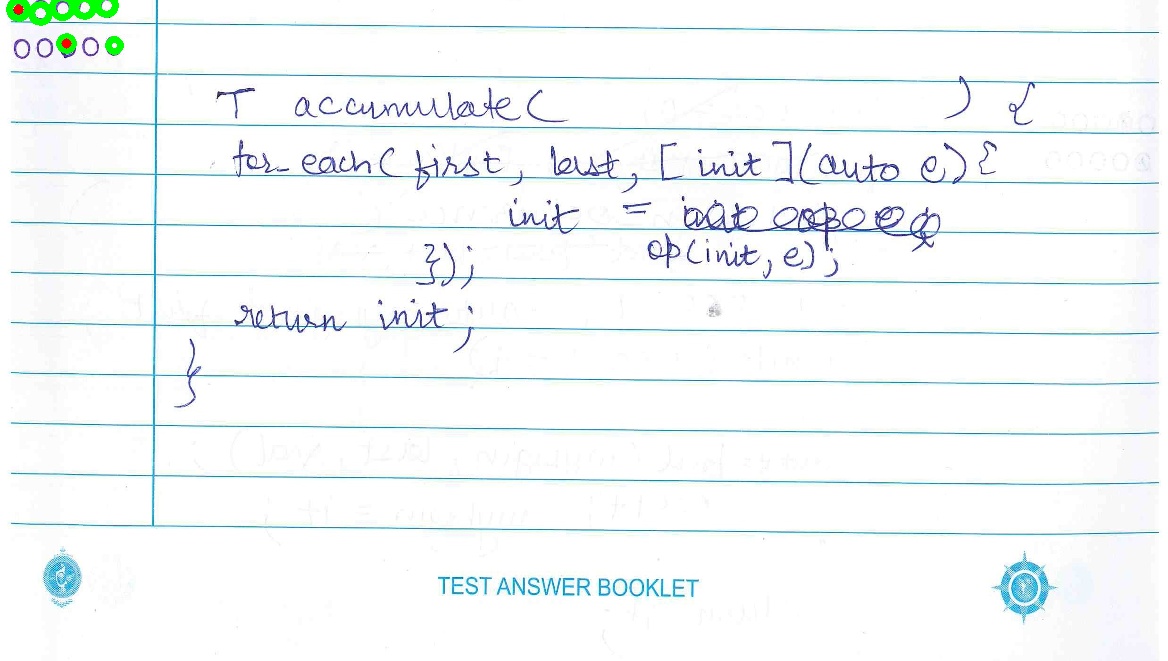 T accumulate(                    ) {
for_each( first, last, [init](auto e){
init =
op(init, e);
});
return init;
}
TEST ANSWER BOOKLET